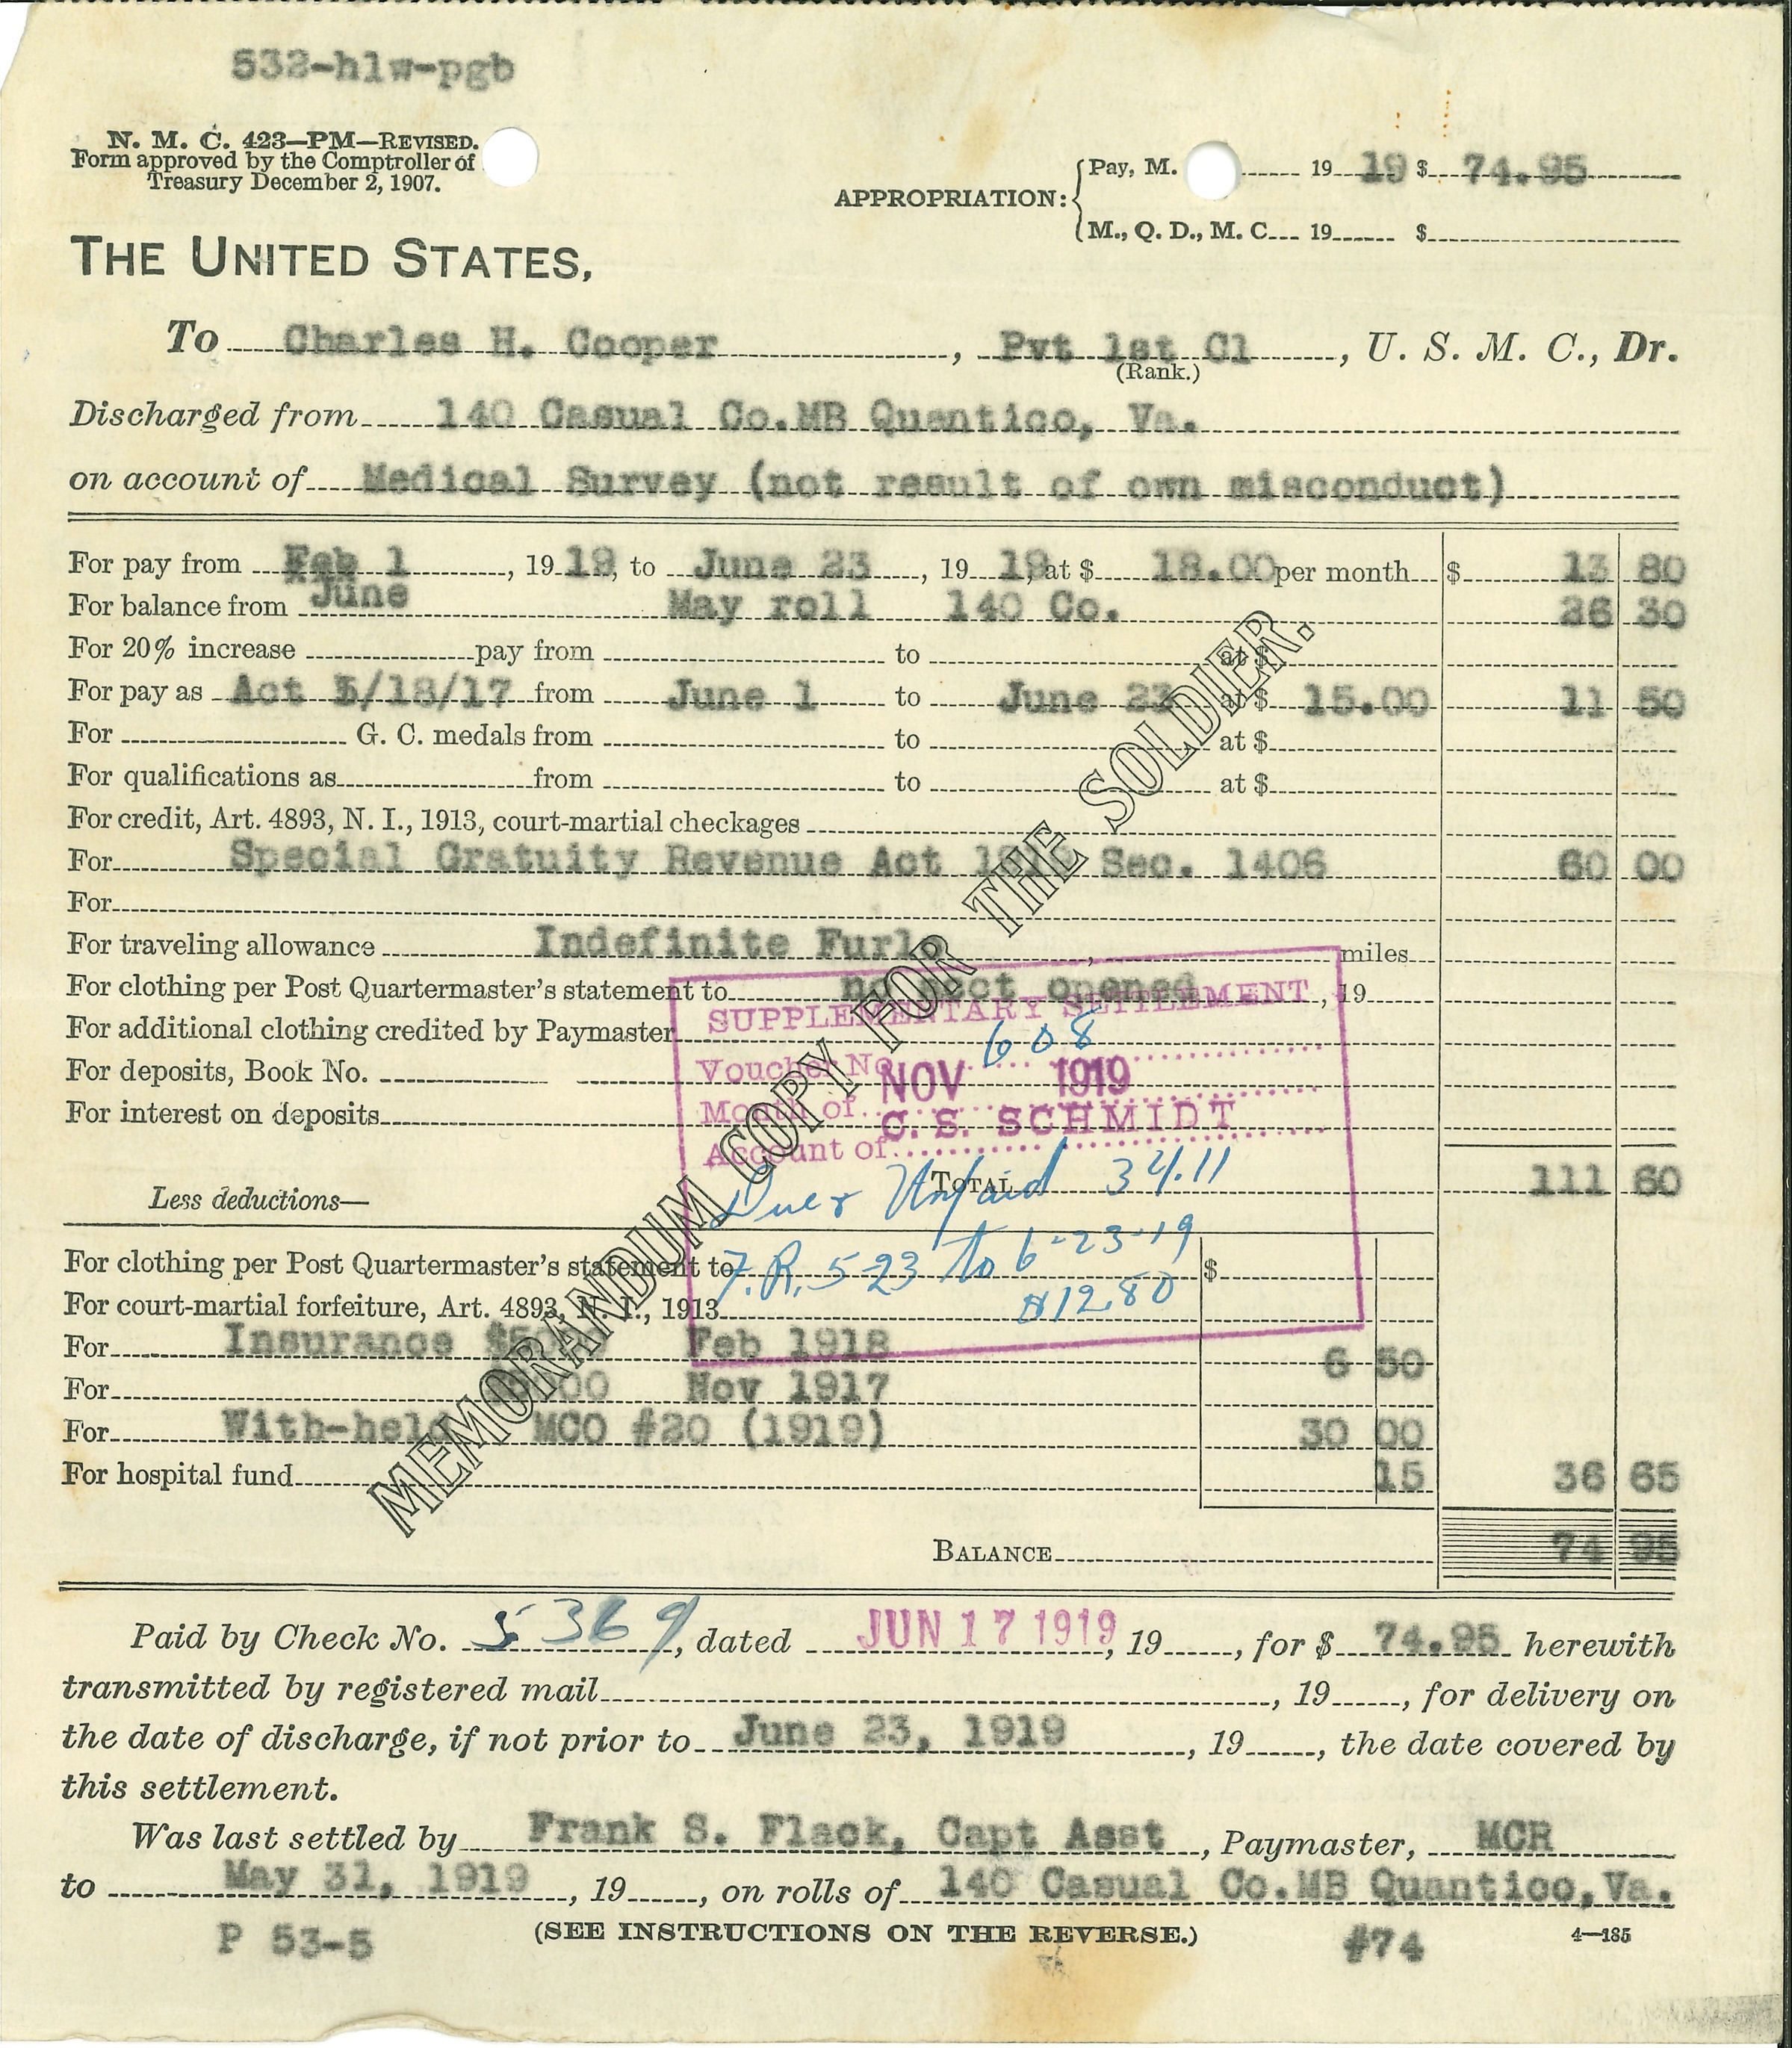 532-hlw-pgb
N. M. C. 423—PM—REVISED.
Form approved by the Comptroller of
Treasury December 2, 1907.
APPROPRIATION:
Pay, M. 19 19 $ 74.95
M., Q. D., M. C. 19 $
THE UNITED STATES,
To Charles H. Cooper, Pvt 1st Cl, U. S. M. C., Dr.
(Rank.)
Discharged from 140 Casual Co.MB Quantico, Va.
on account of Medical Survey (not result of own misconduct)
For pay from Feb 1, 19 19, to June 23, 19 19 at $ 18.00 per month $ 13 80
June
For balance from May roll 140 Co. 26 30
For 20% increase pay from to at $
For pay as Act 5/18/17 from June 1 to June 23 at $ 15.00 11 50
For G. C. medals from to at $
For qualifications as from to at $
For credit, Art. 4893, N. I., 1913, court-martial checkages
For Special Gratuity Revenue Act Sec. 1406 60 00
For
For traveling allowance Indefinite Furlo, miles
For clothing per Post Quartermaster's statement to no acct opened, 19
For additional clothing credited by Paymaster
For deposits, Book No.
For interest on deposits
TOTAL 111 60
Less deductions—
For clothing per Post Quartermaster's statement to $
For court-martial forfeiture, Art. 4893, N. I., 1913
For Insurance Feb 1918 6 50
For Nov 1917
For With-held MCO #20 (1919) 30 00
For hospital fund 15 36 65
BALANCE 74 95
MEMORANDUM COPY FOR THE SOLDIER.
SUPPLEMENTARY SETTLEMENT
Voucher No. 608
Month of NOV 1919
Account of C. S. SCHMIDT
Due & Unpaid 34.11
F.R. 5-23 to 6-23-19
$12.80
Paid by Check No. 5369, dated JUN 17 1919, 19, for $ 74.95 herewith
transmitted by registered mail, 19, for delivery on
the date of discharge, if not prior to June 23, 1919, 19, the date covered by
this settlement.
Was last settled by Frank S. Flack, Capt Asst, Paymaster, MCR
to May 31, 1919, 19, on rolls of 140 Casual Co.MB Quantico, Va.
P 53-5
(SEE INSTRUCTIONS ON THE REVERSE.)
#74
4—185